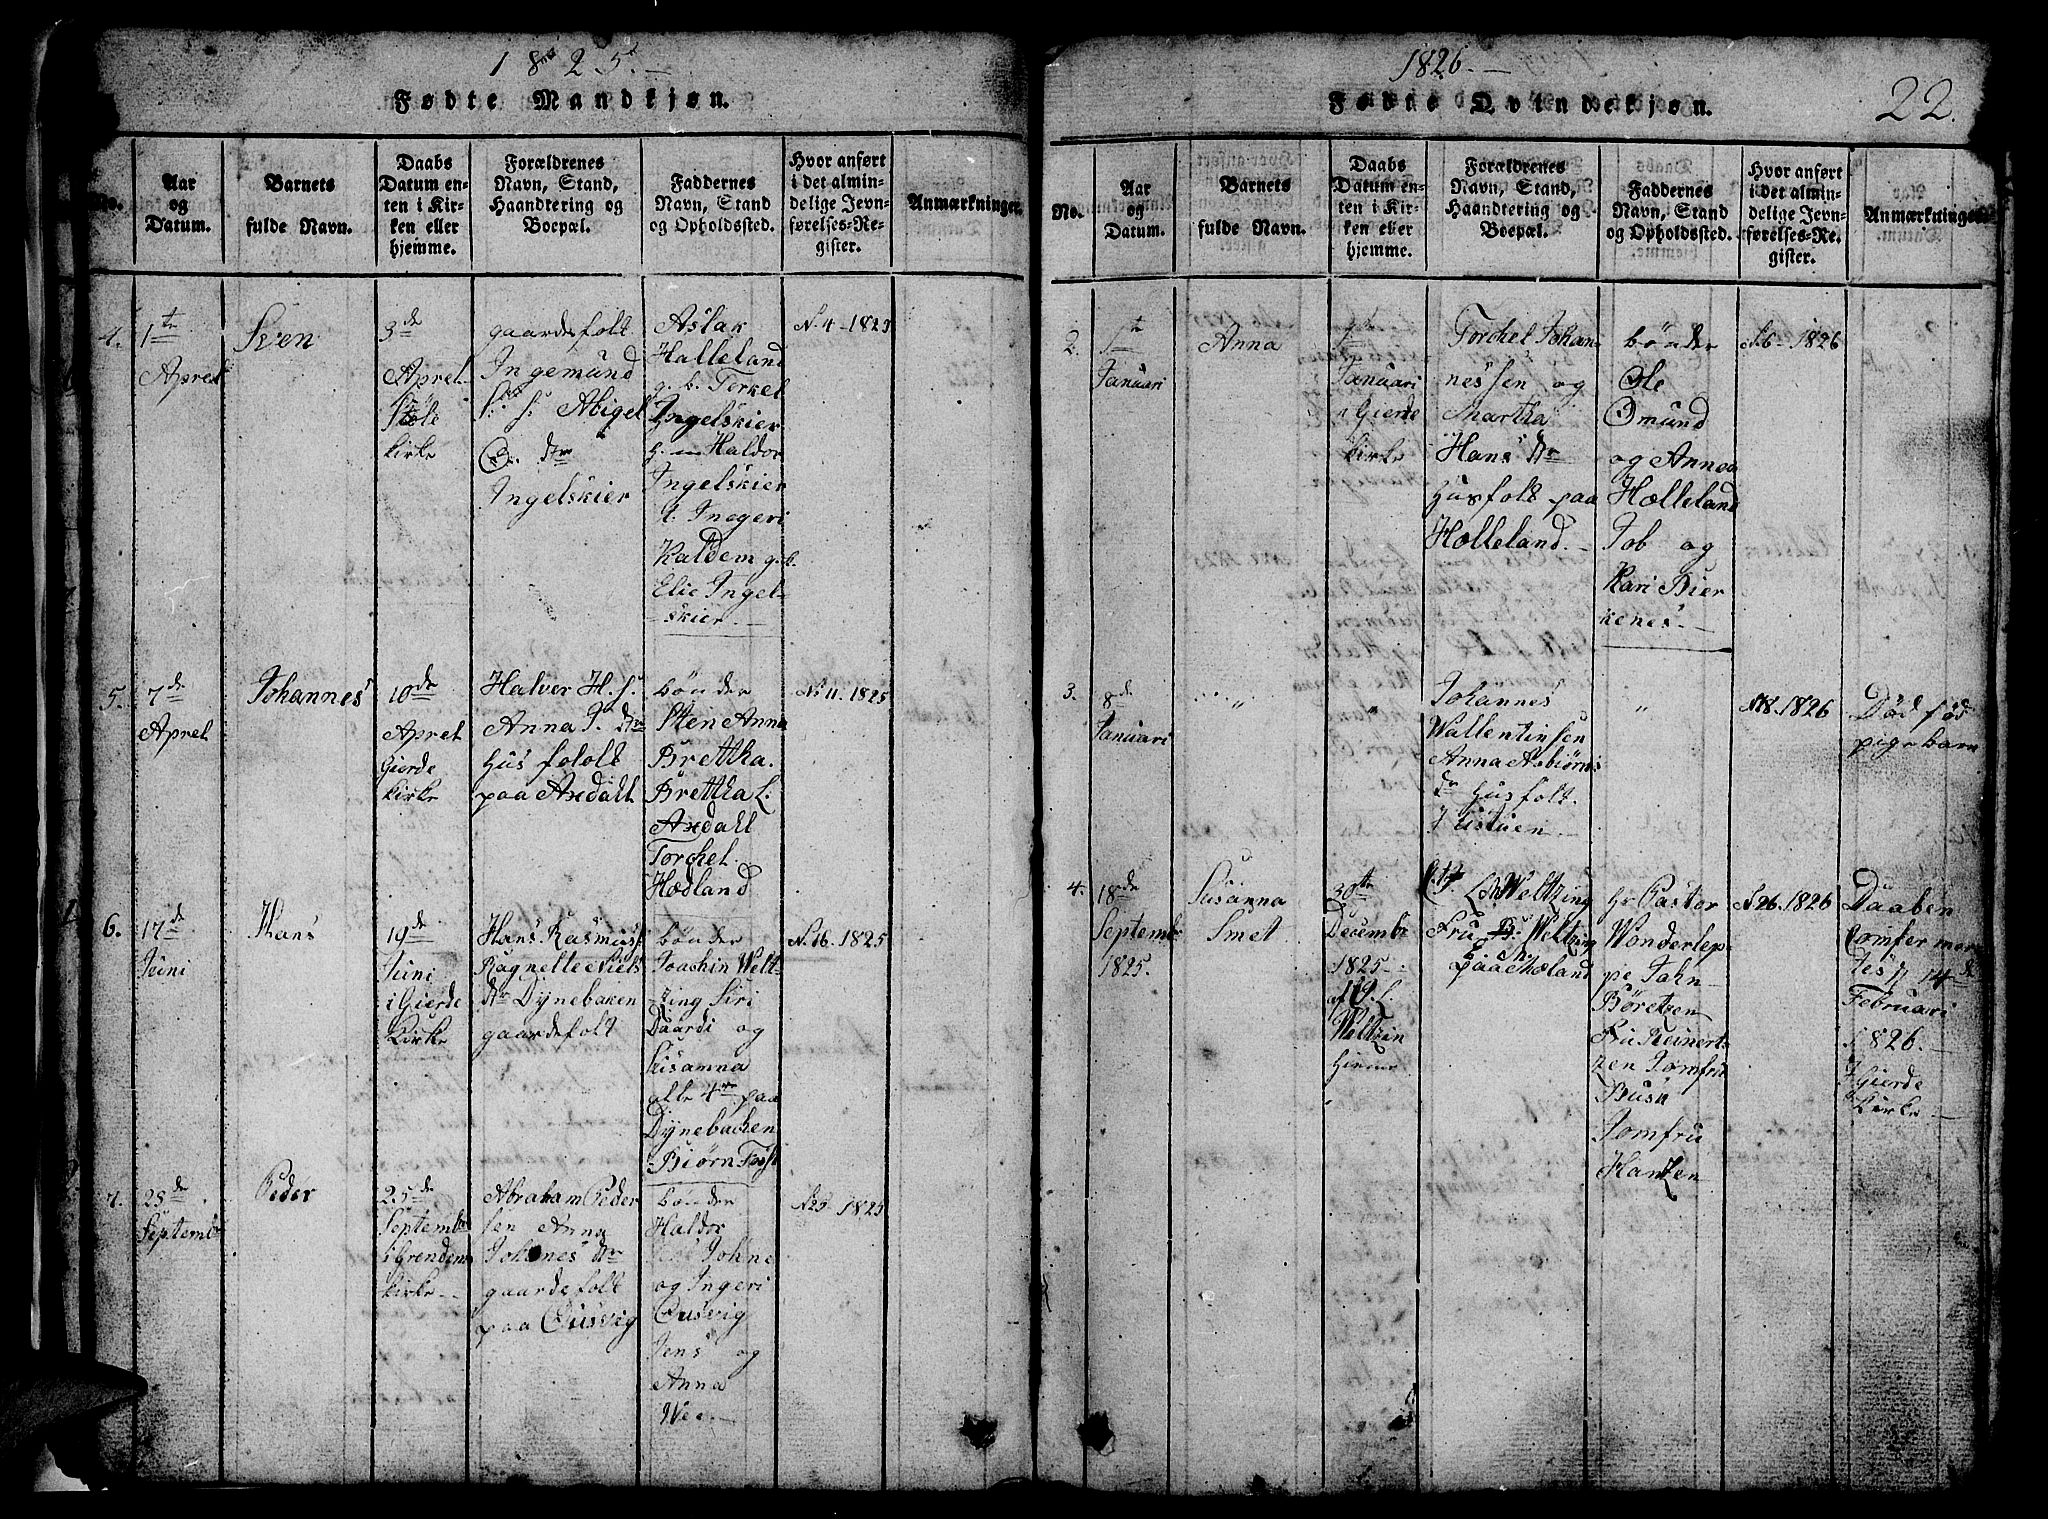 1825.
Fødte Mandkjøn.
No.
Aar
og
Datum.
Barnets
fulde Navn.
Daabs
Datum en-
ten i Kir-
ken eller
hjemme.
Forældrenes
Navn, Stand,
Haandtering og
Boepæl.
Faddernes
Navn, Stand
og Opholdssted.
Hvor anført
i det almin-
delige Jevn-
førelses-Re-
gister.
Anmærkninger.
4.
1te
Aprel
Sven
3de
Aprel
Støle
kirke
gaardesfolt
Ingemund
Abigel
O. dtr
Ingelskier
Aslak
Halleland
g. k. Torkel
Ingelskier
Haldor
Ingelskier
Inegeri
Kaldem g. k.
Elie Ingel-
skier.
N. 4 - 1825
5.
7de
Aprel
Johannes
10de
Aprel
Gierde
kirke
Halver H. s.
Anna J. dtr
Hus fololt
paa Axdahl
bønder
Sten Anna
Brettha
Brettha L.
Axdall
Torchel
Hædland
N. 11. 1825
6.
17de
Juni
Hans
19de
Juni
i Gierde
Kirke
Hans Rasmuss
Ragnelle Niels
dtr Dÿnebaken
gaardefolt
bønder
Joachin Welt-
zing Siri
Daardi og
Susamna
alle 4re paa
Dÿnebachen
Biørn Tost
N. 16. 1825
7.
28de
Septemb
Peder
25de
Septemb
i Grendem
kirke
Abraham Peder
sen Anna
Johanes dtr
gaardefolt
paa Ousvig
bønder
Haldor
Johne
og Ingeri
Ousvig
Jens og
Anna
Wee.
N 25. 1825
1826.
22.
Fødte Qvindekjøn.
No.
Aar
og
Datum.
Barnets
fulde Navn.
Daabs
Datum en-
ten i Kir-
ken eller
hjemme.
Forældrenes
Navn, Stand,
Haandtering og
Boepæl.
Faddernes
Navn, Stand
og Opholdssted.
Hvor anført
i det almin-
delige Jevn-
førelses-Re-
gister.
Anmærkninger
2.
1te
Januari
Anna
Januari
i Gierde
kirke
Torchel Johan
nessen og
Martha
Hans dtr
Husfolt paa
Hølleland.
bønder
Ole
Omund
og Anna
Hælleland
Job og
Kari Bier
kenes.
N. 6 - 1826
3.
8de
Januari
"
"
Johannes
Wallentinsen
Anna Asbiørns
dr Husfolt
Justuen
"
N. 18. 1826
Død fød
pigebarn
4.
18de
Septemb
1825.
Susanna
Smet
30te
Decembr
1825
af
Weltzin
Hieme
Weltzing
Fru B. Weltzing
paa Mæland
Hr Pastor
Wonderlep-
pe Jahn
Børetzen
Fru Reinert-
zen Jomfru
Busk
Jomfru
Hantzen
N. 26. 1826
Daaben
Comfermer
tes d 14de
Februari
1826.
J Gierde
kirke